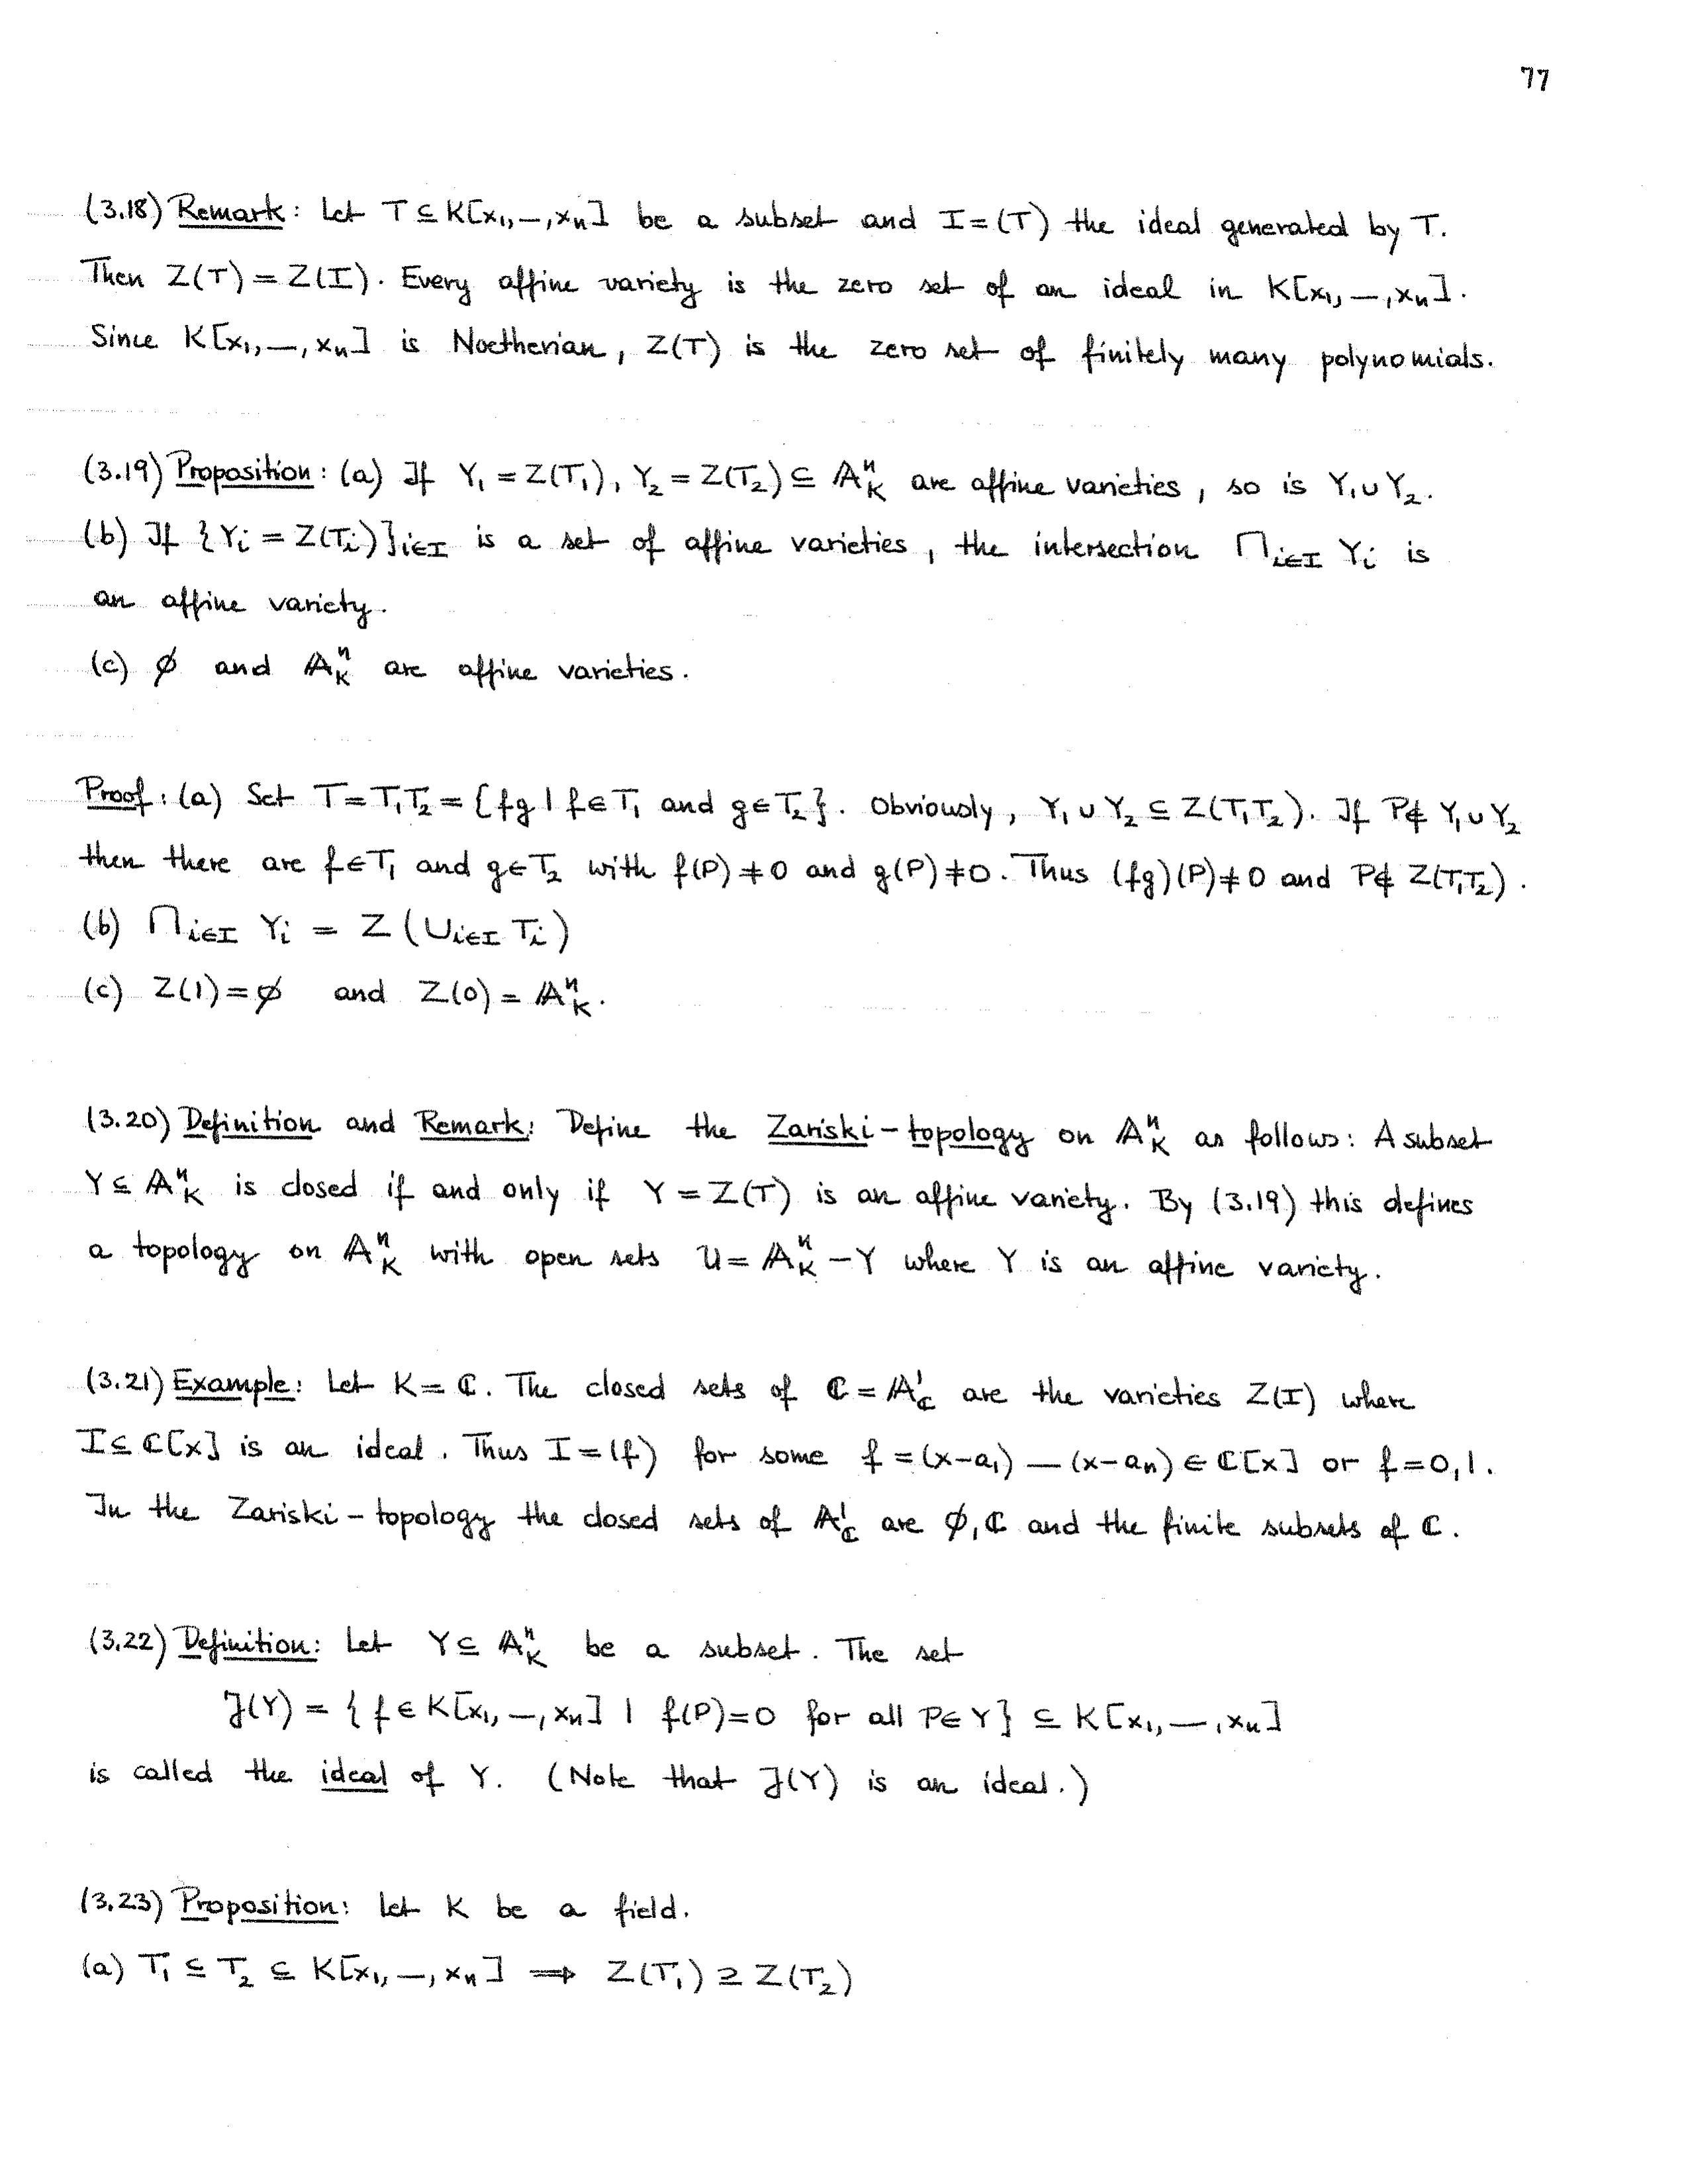 77
(3.18) Remark: Let T ⊆ K[x₁, —, xₙ] be a subset and I = (T) the ideal generated by T.
Then Z(T) = Z(I). Every affine variety is the zero set of an ideal in K[x₁, —, xₙ].
Since K[x₁, —, xₙ] is Noetherian, Z(T) is the zero set of finitely many polynomials.
(3.19) Proposition: (a) If Y₁ = Z(T₁), Y₂ = Z(T₂) ⊆ 𝔸ⁿ_K are affine varieties, so is Y₁ ∪ Y₂.
(b) If {Yᵢ = Z(Tᵢ)}_{i∈I} is a set of affine varieties, the intersection ⋂_{i∈I} Yᵢ is
an affine variety.
(c) ∅ and 𝔸ⁿ_K are affine varieties.
Proof: (a) Set T = T₁T₂ = {fg | f ∈ T₁ and g ∈ T₂}. Obviously, Y₁ ∪ Y₂ ⊆ Z(T₁T₂). If P ∉ Y₁ ∪ Y₂
then there are f ∈ T₁ and g ∈ T₂ with f(P) ≠ 0 and g(P) ≠ 0. Thus (fg)(P) ≠ 0 and P ∉ Z(T₁T₂).
(b) ⋂_{i∈I} Yᵢ = Z(⋃_{i∈I} Tᵢ)
(c) Z(1) = ∅ and Z(0) = 𝔸ⁿ_K.
(3.20) Definition and Remark: Define the Zariski-topology on 𝔸ⁿ_K as follows: A subset
Y ⊆ 𝔸ⁿ_K is closed if and only if Y = Z(T) is an affine variety. By (3.19) this defines
a topology on 𝔸ⁿ_K with open sets U = 𝔸ⁿ_K − Y where Y is an affine variety.
(3.21) Example: Let K = ℂ. The closed sets of ℂ = 𝔸¹_ℂ are the varieties Z(I) where
I ⊆ ℂ[x] is an ideal. Thus I = (f) for some f = (x−a₁) — (x−aₙ) ∈ ℂ[x] or f = 0, 1.
In the Zariski-topology the closed sets of 𝔸¹_ℂ are ∅, ℂ and the finite subsets of ℂ.
(3.22) Definition: Let Y ⊆ 𝔸ⁿ_K be a subset. The set
J(Y) = {f ∈ K[x₁, —, xₙ] | f(P) = 0 for all P ∈ Y} ⊆ K[x₁, —, xₙ]
is called the ideal of Y. (Note that J(Y) is an ideal.)
(3.23) Proposition: Let K be a field.
(a) T₁ ⊆ T₂ ⊆ K[x₁, —, xₙ] ⟹ Z(T₁) ⊇ Z(T₂)